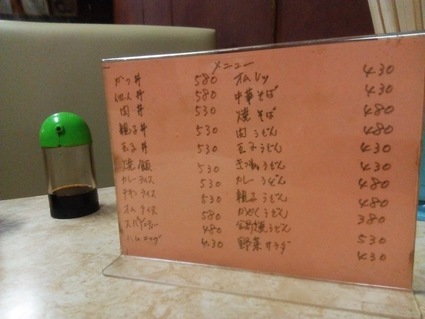 メニュー
かつ丼 580
580
肉丼 530
親子丼 530
玉子丼 530
焼飯 530
カレーライス 530
チキンライス 530
オムライス 580
スパゲッティー 480
430
オムレツ 430
中華そば 430
焼そば 480
肉うどん 480
玉子うどん 430
きつねうどん 430
カレーうどん 480
親子うどん 480
かやくうどん 380
鍋焼うどん 530
野菜サラダ 430